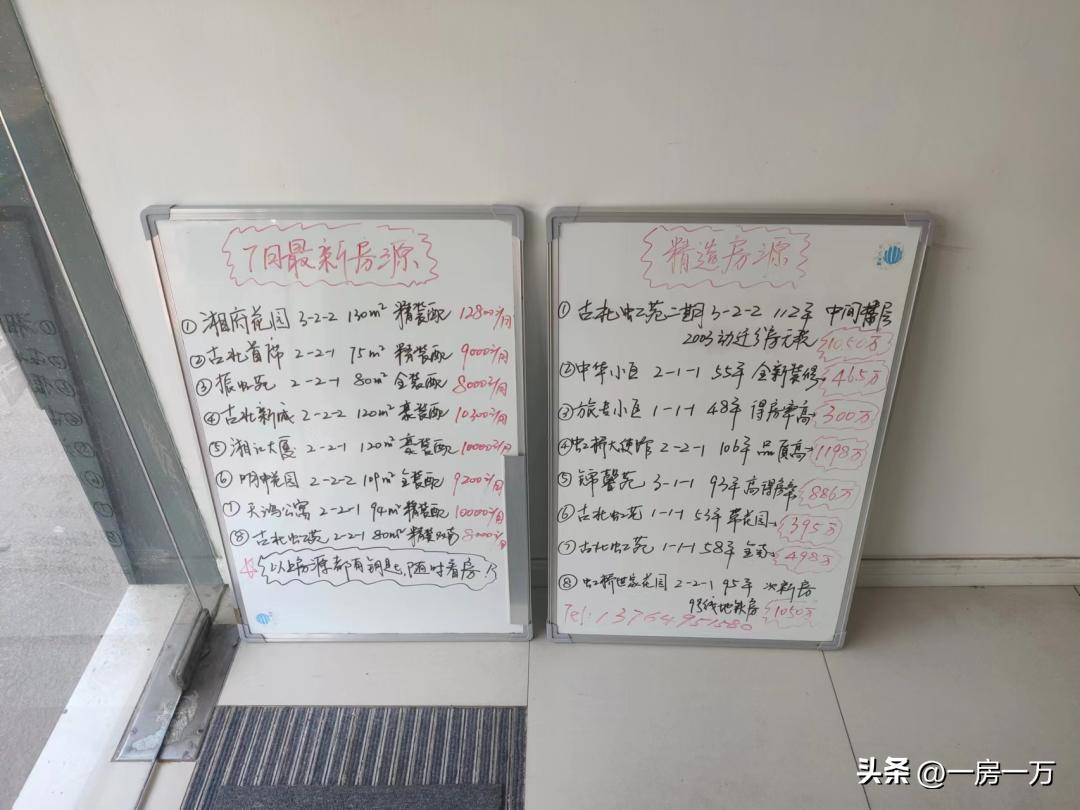 7月最新房源
① 湘府花园 3-2-2 130m² 精装配 12800/月
② 古北首席 2-2-1 75m² 精装配 9000/月
③ 振虹苑 2-2-1 80m² 全装配 8000/月
④ 古北新城 2-2-2 120m² 豪装配 10300/月
⑤ 湘江大厦 2-2-1 120m² 豪装配 10000/月
⑥ 明申花园 2-2-2 109m² 全装配 9200/月
⑦ 天鸿公寓 2-2-1 94m² 精装配 10000/月
⑧ 古北虹苑 2-2-1 80m² 精装 8000/月
以上房源都有钥匙,随时看房!
精选房源
① 古北虹苑二期 3-2-2 112平 中间楼层
2003动迁 1050万
② 中华小区 2-1-1 55平 全新装修 465万
③ 旅专小区 1-1-1 48平 得房率高 300万
④ 虹桥大使馆 2-2-1 106平 品质高 1198万
⑤ 锦馨苑 3-1-1 93平 高得房率 886万
⑥ 古北虹苑 1-1-1 53平 带花园 395万
⑦ 古北虹苑 1-1-1 58平 全南 498万
⑧ 虹桥世家花园 2-2-1 95平 次新房
9号线地铁房 1050万
Tel: 13764951580
头条 @一房一万